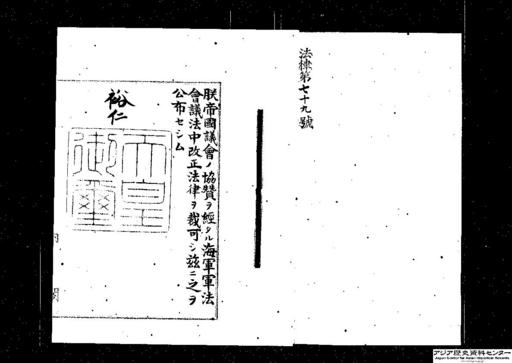 法律第七十九號
朕帝國議會ノ協贊ヲ經タル海軍軍法
會議法中改正法律ヲ裁可シ茲ニ之ヲ
公布セシム
裕仁
天皇
御璽
內閣
アジア歴史資料センター
Japan Center for Asian Historical Records